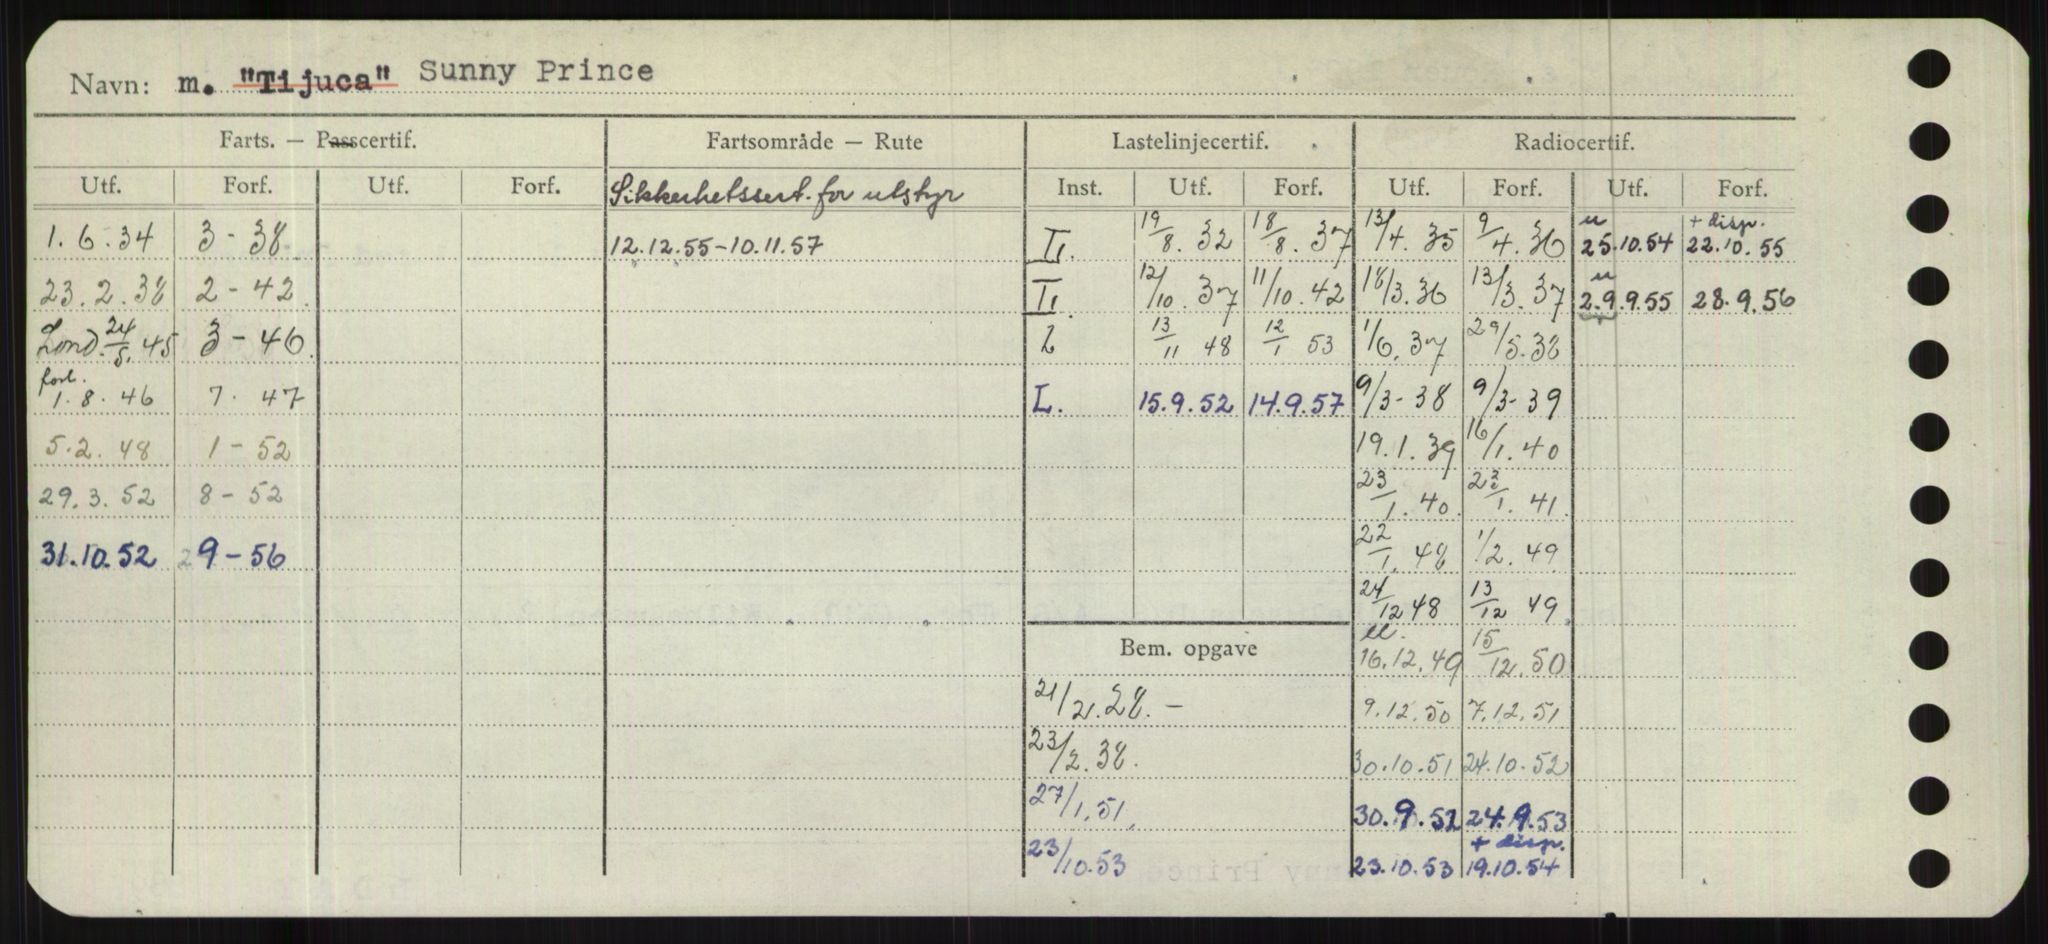 Navn: m. "Tijuca" Sunny Prince
Farts. — Passcertif. Fartsområde — Rute Lastelinjecertif. Radiocertif.
Utf. Forf. Utf. Forf. Sikkerhetssert. for utstyr Inst. Utf. Forf. Utf. Forf. Utf. Forf.
1.6.34 3 - 38 12.12.55-10.11.57 II. 19/8. 32 18/8. 37 13/4. 35 9/4. 36 u 25.10.54 + disp. 22.10.55
23.2.38 2 - 42 II. 12/10. 37 11/10. 42 18/3. 36 13/3. 37 u 29.9.55 28.9.56
Lond. 24/5. 45 3 - 46 L 13/11 48 12/1 53 1/6. 37 29/5. 38
forl. 1.8.46 7. 47 L. 15.9.52 14.9.57 9/3 - 38 9/3 - 39
5.2.48 1 - 52 19.1.39 16/1. 40
29.3.52 8 - 52 23/1. 40 22/1. 41
31.10.52 9 - 56 22/1. 48 1/2. 49
24/12 48 13/12 49
Bem. opgave 16.12.49 15/12. 50
21/2. 28. - 9.12.50 7.12.51
23/2. 38. 30.10.51 24.10.52
27/1. 51. 30.9.52 24.9.53
23/10. 53 23.10.53 + disp. 19.10.54